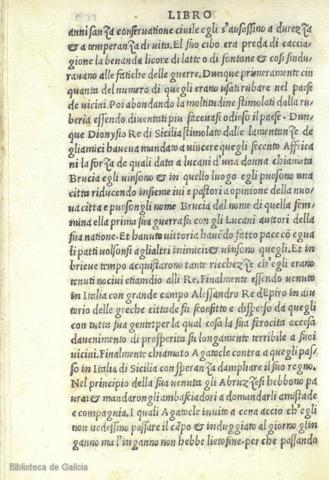 LIBRO
anni sanza conseruatione ciuile egli s'ausossino a durezza
& a temperanza di uita. El suo cibo era preda di caccia-
gione la beuanda licore di latte o di fontane & cosi findu
rauano alle fatiche delle guerre. Dunque primeramente cin
quanta del numero di quegli erano usati rubare nel paese
de uicini. Poi abondando la moltitudine stimolati dalla ru-
beria essendo diuentati piu faceuasi odioso il paese. Dun-
que Dionysio Re di Sicilia stimolato dalle lamentanze de
gliamici haueua mandato a uincere quegli secento Affrica
ni la forza de quali data a lucani d'una donna chiamata
Brucia egli uinsono & in quello luogo egli puosono una
citta riducendo insieme iui e pastori a opinione della nuo-
ua citta e puosongli nome Brucia dal nome di quella fem-
mina ella prima sua guerra fu con gli Lucani auttori della
sua natione. Et hauuto uittoria hauēdo fatto pace cō egua
li patti uolsonsi agli altri inimici: & uinsono quegli. Et in
brieue tempo acquistarono tante ricchezze ch'egli erano
tenuti nociui etiamdio alli Re. Finalmente essendo uenuto
in Italia con grande campo Alessandro Re d'Epiro in aiu
torio delle greche cittade fu sconfitto e disperso da quegli
con tutta sua gente: per la qual cosa la sua ferocita accesa
d'auenimento di prosperita fu longamente terribile a suoi
uicini. Finalmente chiamato Agatocle contra a quegli pas-
so in Italia di Sicilia con speranza d'ampliare il suo regno.
Nel principio della sua uenuta gli Abruzzesi hebbono pa
ura: & mandaron gli ambasciadori a domandarli amistade
e compagnia. I quali Agatocle inuito a cena accio ch'egli
non uedessino passare il cāpo & induggiato al giorno gl'in
ganno ma l'inganno non hebbe lieto fine. per che passando
Biblioteca de Galicia